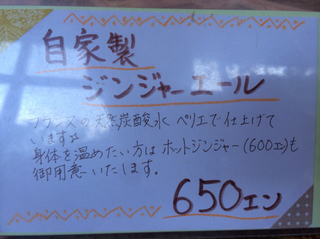 自家製
ジンジャーエール
フランスの天然炭酸水 ペリエで仕上げて
います。
身体を温めたい方は ホットジンジャー(600エン)も
御用意いたします。
650エン